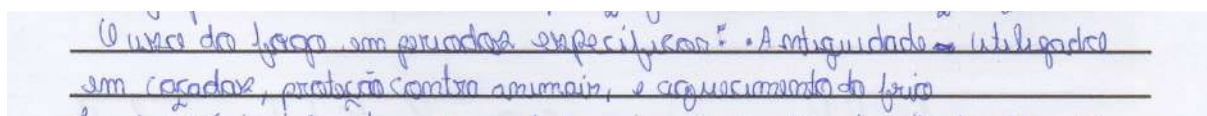 O uso do fogo em periodos especificos: • Antiguidade - utilizados
em caçadas, proteção contra animais, e aquecimento do frio